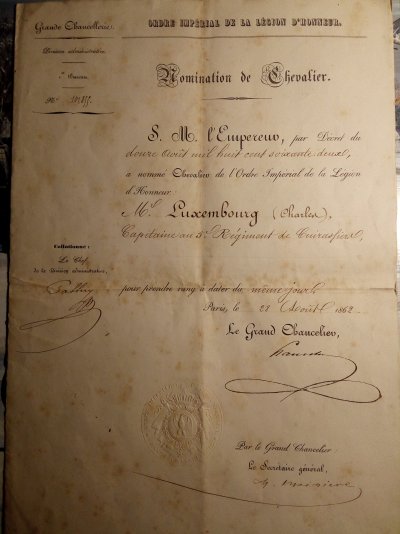 ORDRE IMPÉRIAL DE LA LÉGION D'HONNEUR.
Grande Chancellerie.
Division administrative.
Bureau.
Nº
Nomination de Chevalier.
S. M. l'Empereur, par Décret du
douze Août mil huit cent soixante deux,
a nommé Chevalier de l'Ordre Impérial de la Légion
d'Honneur:
Mr Luxembourg (Charles),
Capitaine au 5e Régiment de Cuirassiers
pour prendre rang à dater du même jour.
Paris, le 27 Août 1862
Collationné:
Le Chef
de la Division administrative,
Le Grand Chancelier,
Par le Grand Chancelier
Le Secrétaire général,